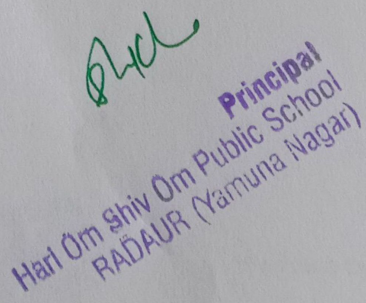 Principal
Hari Om Shiv Om Public School
RADAUR (Yamuna Nagar)